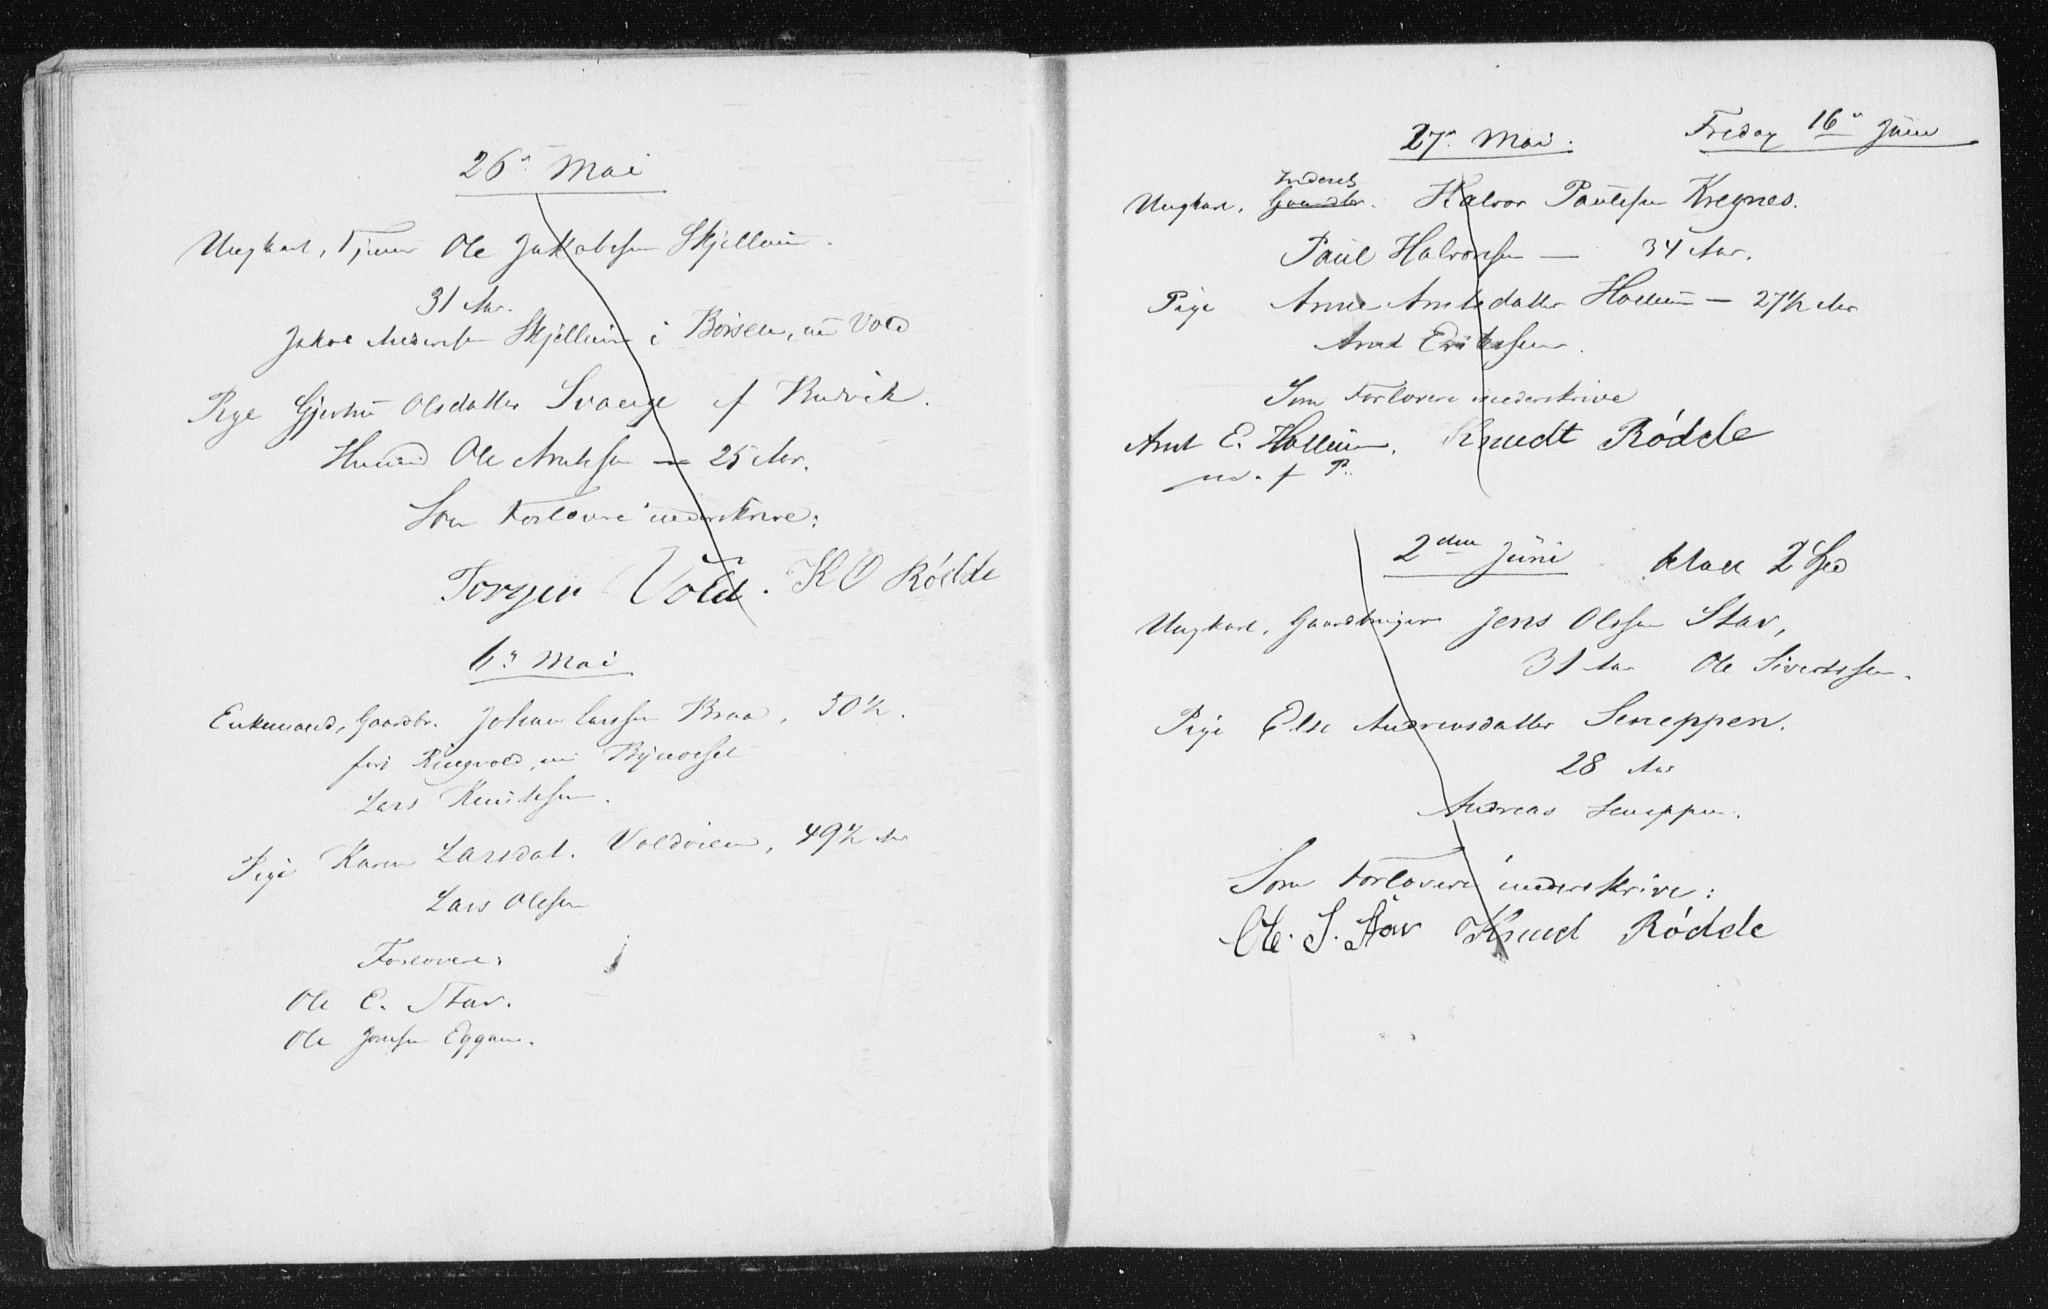 26n Mai
Ungkarl, Tjener Ole Jakobsen Skjellum.
31 Aar.
Jakob Andersen Skjellum i Börsen, nu Vold
Pige Olsdatter Svange f
Ole Arntsen — 25 Aar.
Som Forlovere underskrive:
Vold. K O Rødde
6n Mai
Enkemand, Gaardbr. Johan Larssen Braa, 50½.
Ringvold, nu Bynæsset
Lars Knutssen.
Pige Karen Larsdat. Voldvien, 49½ Aar
Lars Olssen
Forlovere:
Ole E. Stav.
Ole Eggan.
27n Mai. Fredag 16n Juni
Inderst
Ungkarl, Gaardbr. Halvor Paulssen Kregnes.
Paul Halvorsen — 34 Aar.
Pige Anne Arntsdatter Hollum — 27½ Aar
Arnt Erikssen.
Som Forlovere underskrive
Arnt E. Hollum. Knudt Rødde
m. f P.
2den Juni
Ungkarl, Gaardbruger Jens Olssen Stav,
31 Aar Ole Sivertssen.
Pige Else Andreasdatter Seneppen.
28 Aar
Andreas Seneppen.
Som Forlovere underskrive:
Ole. S. Stav Knud Rødde